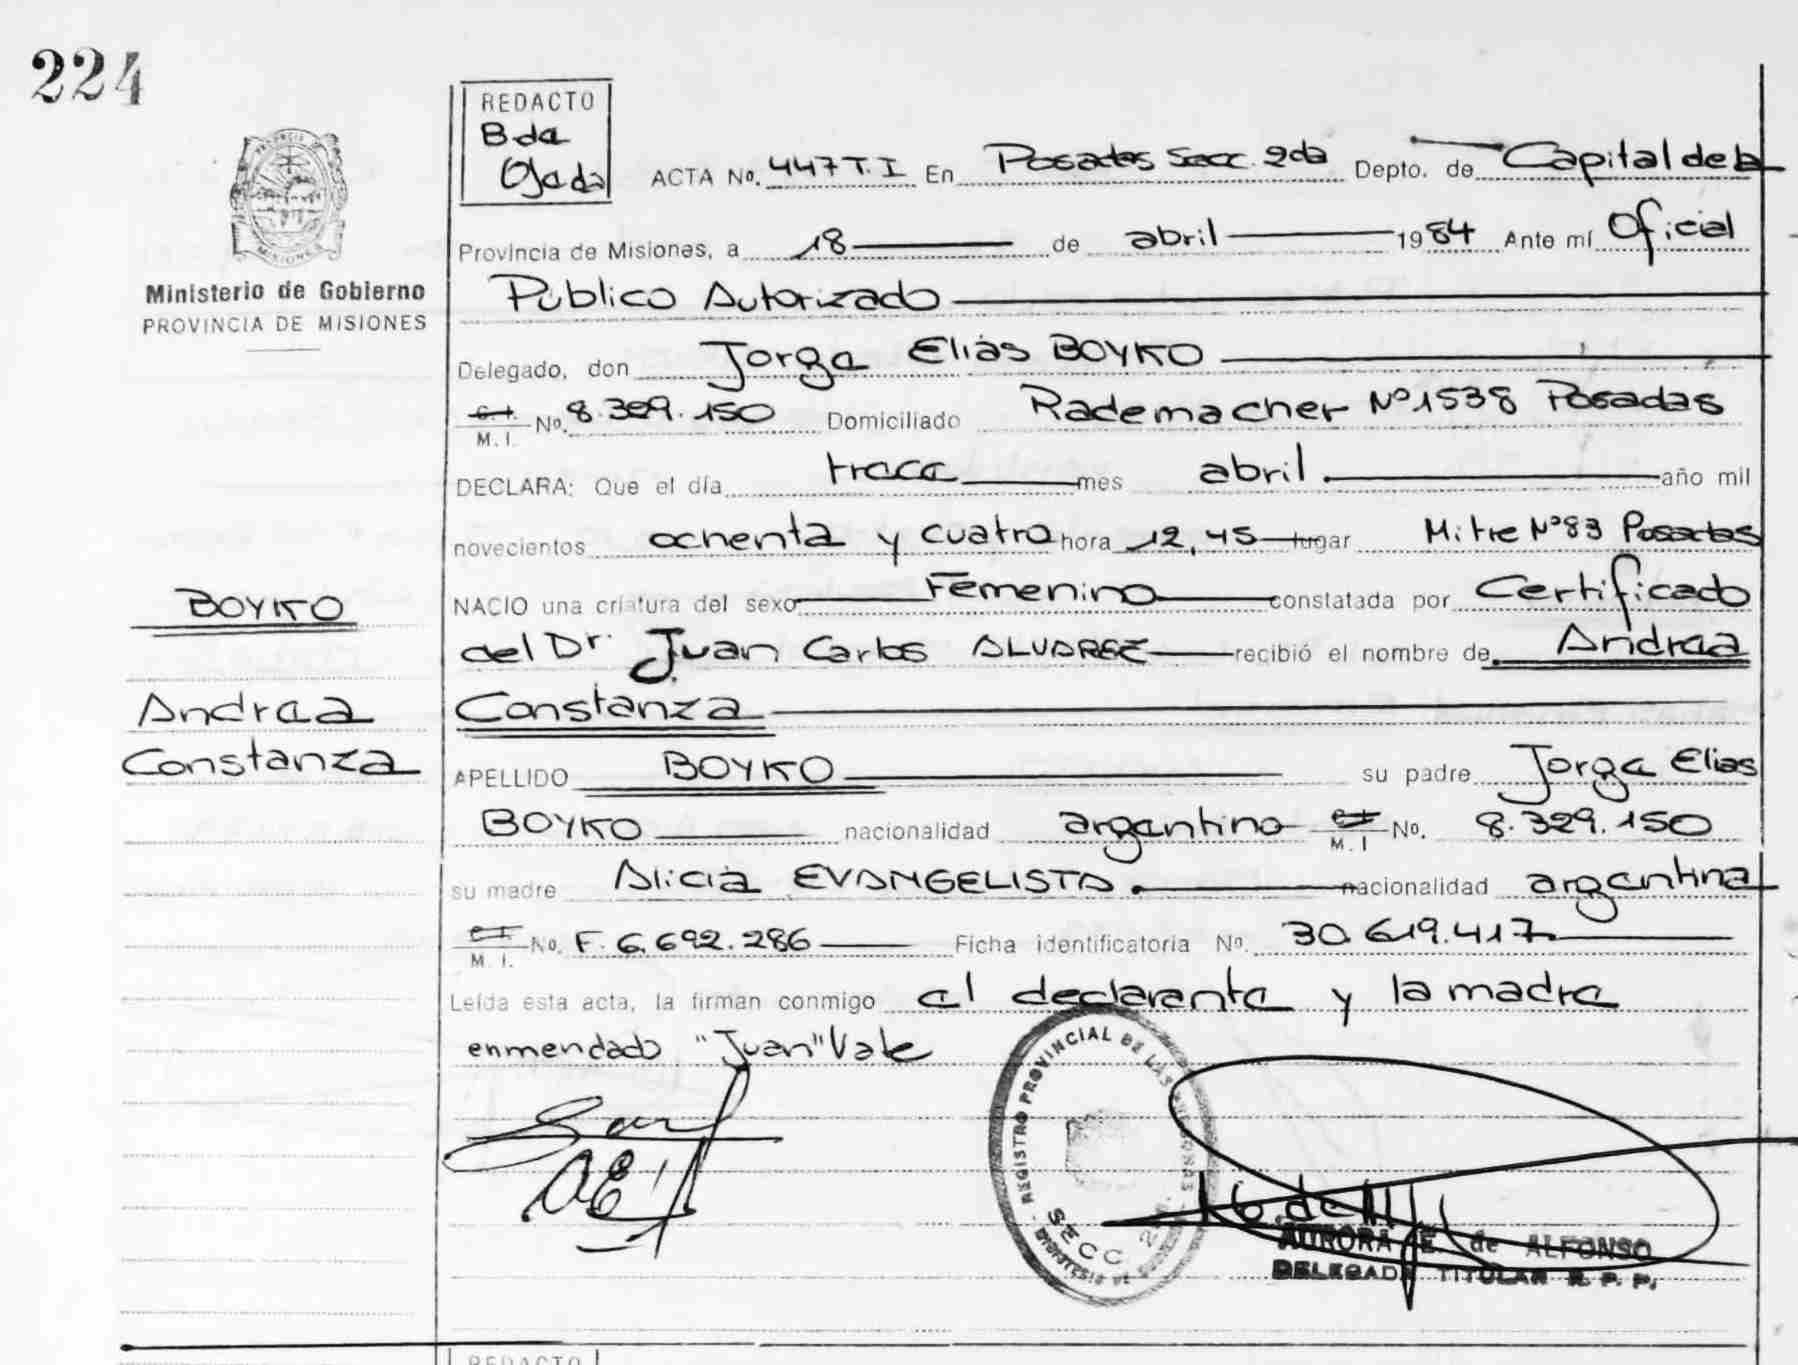 224
REDACTO
Bda
Ojeda
ACTA No. 447 T. I En Posadas Secc. 2da Depto. de Capital de la
Provincia de Misiones, a 18 de abril 1984 Ante mí Oficial
Ministerio de Gobierno
PROVINCIA DE MISIONES
Público Autorizado
Delegado, don Jorge Elías BOYKO
C. I. M. I. No. 8.329.150 Domiciliado Rademacher Nº 1538 Posadas
DECLARA: Que el día trece mes abril año mil
novecientos ochenta y cuatro hora 12,45 lugar Mitre Nº 83 Posadas
BOYKO
NACIO una criatura del sexo Femenino constatada por Certificado
del Dr. Juan Carlos ALVAREZ recibió el nombre de Andrea
Andrea
Constanza
Constanza
APELLIDO BOYKO su padre Jorge Elias
BOYKO nacionalidad argentino C.I. M. I No. 8.329.150
su madre Alicia EVANGELISTA. nacionalidad argentina
C.I. M. I. No. F. 6.692.286 Ficha identificatoria No. 30.619.417
Leída esta acta, la firman conmigo el declarante y la madre
enmendado "Juan" Vale
REGISTRO PROVINCIAL DE LAS PERSONAS
SECC. 2da.
AURORA E. de ALFONSO
DELEGADA TITULAR R. P. P.
REDACTO